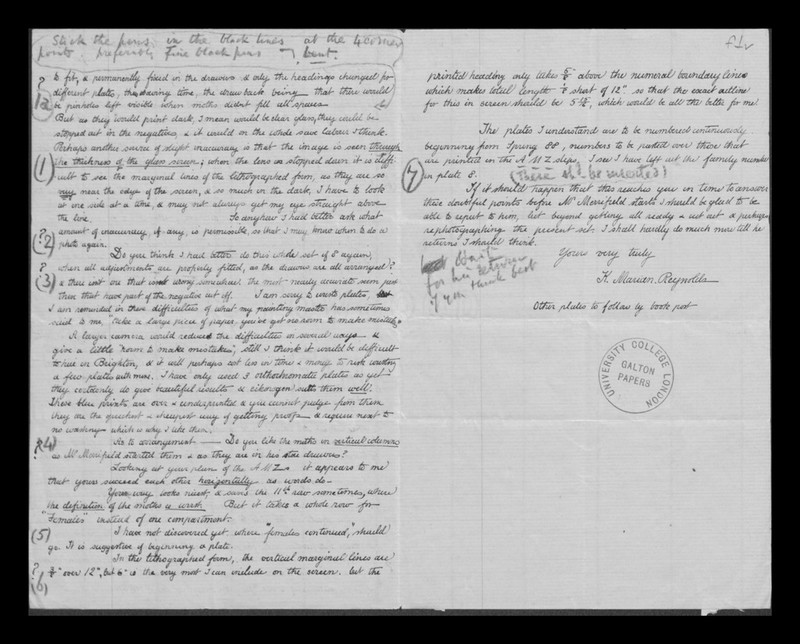 Stick the pins in the black lines at the 4 corner
points. preferably Fine black pins bent.
? to fit, & permanently fixed in the drawers & only the headings changed for
(1a) different plates, thus saving time, the drawback being that there would
be pinholes left visible when moths didn't fill all spaces.
But as they would print dark, I mean would be clear glass, they could be
stopped out in the negatives, & it would on the whole save labour I think.
Perhaps another source of slight inaccuracy is that the image is seen through
(1) the thickness of the glass screen; when the lens is stopped down it is diffi-
cult to see the marginal lines of the lithographed form, as they are so
very near the edge of the screen, & so much in the dark, I have to look
at one side at a time, & may not always get my eye straight above
the line. So anyhow I had better ask what
? amount of inaccuracy if any, is permissible, so that I may know when to do a
(2) photo again.
Do you think I had better do this whole set of 8 again,
? when all adjustments are properly fitted, as the drawers are all arranged?
(3) & then
then that have part of the negative cut off. I am sorry to waste plates,
I am reminded in these difficulties of what my painting master has sometimes
said to me, take a large piece of paper, you've got no room to make mistakes.
A larger camera would reduce the difficulties in several ways &
give a little "room to make mistakes", still I think it would be difficult
to hire in Brighton, & it will perhaps cost less in time & money to risk wasting
a few plates with mine. I have only used 3 orthochromatic plates as yet
they certainly do give beautiful results & eikonogen suits them well.
These blue prints are over & underprinted & you cannot judge from them
they are the quickest & cheapest way of getting proofs & require next to
no washing which is why I like them.
? (4) As to arrangement — Do you like the moths in vertical columns
as Mr Merrifield started them & as they are in his drawers?
Looking at your plan of the A M Z s it appears to me
that yours succeed each other horizontally as words do —
Your way looks nicest, & saves the 11th row sometimes, where
the definition of the moths is worst. But it takes a whole row for
"Females" instead of one compartment.
(5) I have not discovered yet where "females continued," should
go. It is suggestive of beginning a plate.
? In the lithographed form, the vertical marginal lines are
(6) over 12", but 6" is the very most I can include on the screen. but the
printed heading only takes above the numeral boundary lines
which makes total length short of 12" so that the exact outline
for this in screen should be which would be all the better for me
The plates I understand are to be numbered continuously
beginning from Spring 88, numbers to be pasted over those that
are printed in the A M Z slips. I see I have left out the family number
(7) in plate 8. (There shd be inserted)
If it should happen that this reaches you in time to answer
these doubtful points before Mr Merrifield starts I should be glad to be
able to report to him, but beyond getting all ready & cut out & perhaps
rephotographing the present set. I shall hardly do much more till he
returns I should think.
Wait
for his return
if you think best
Yours very truly
F. Marian Reynolds
Other plates to follow by book post
UNIVERSITY COLLEGE LONDON
GALTON
PAPERS